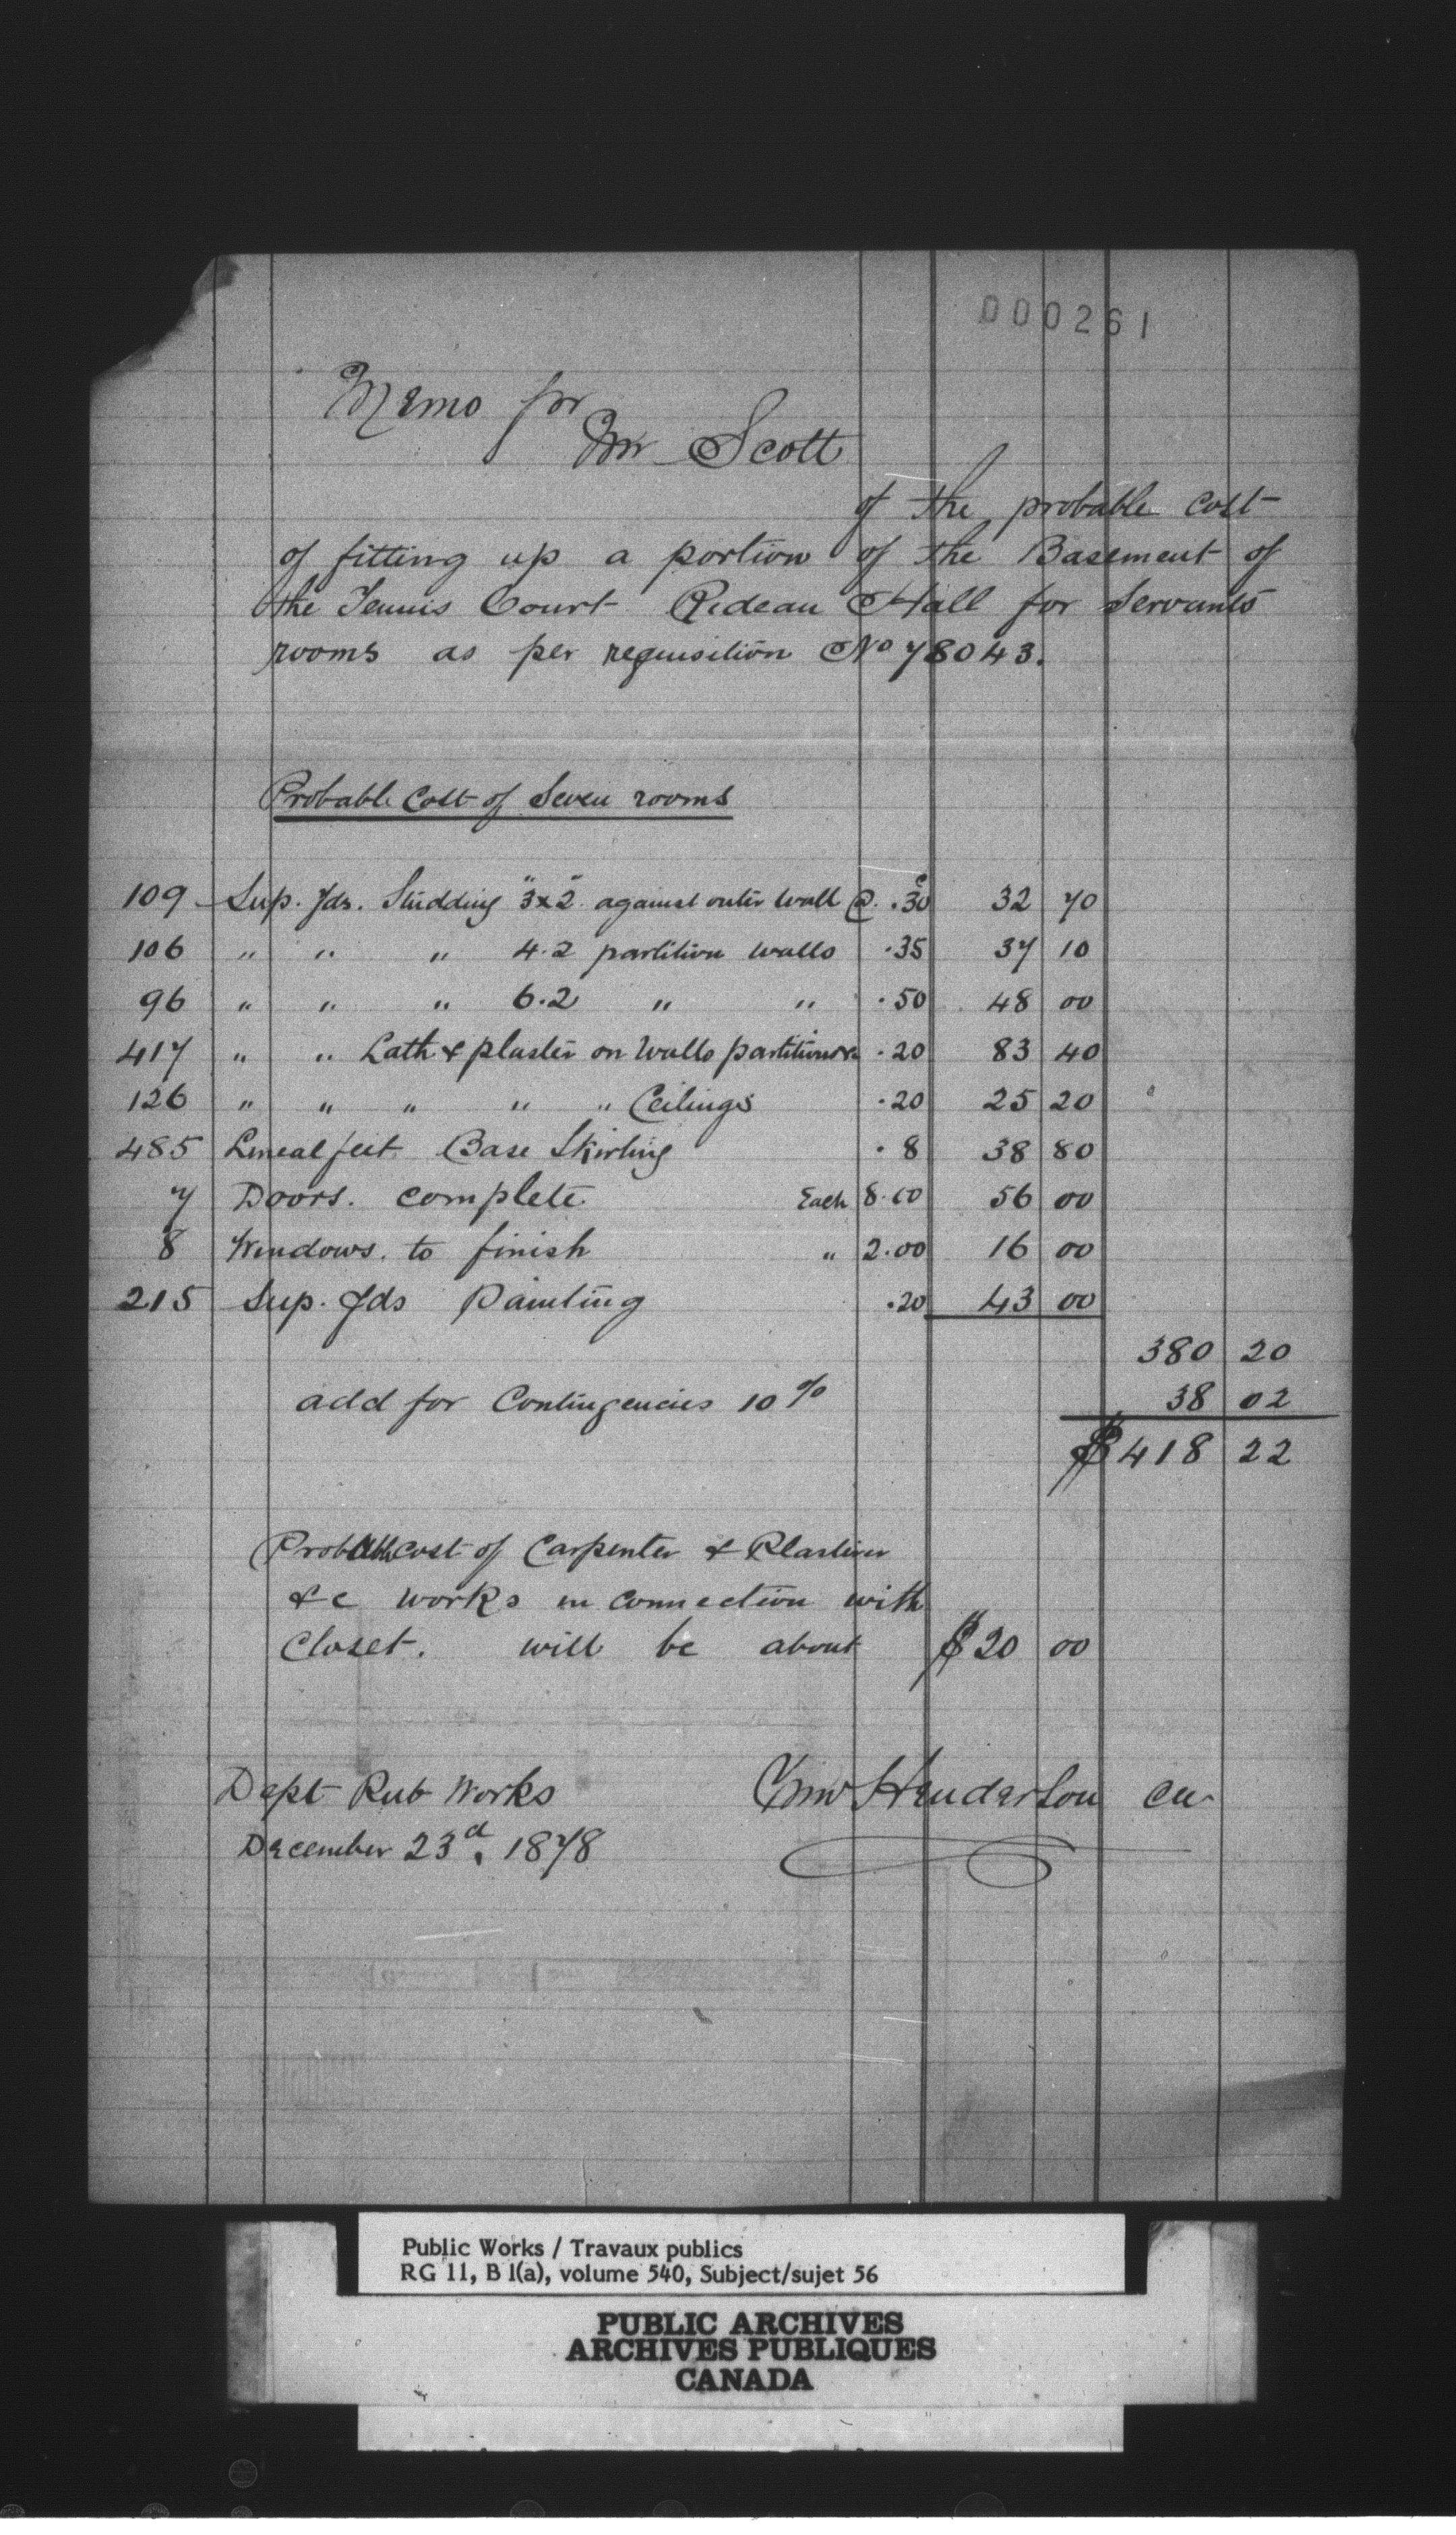 000261
Memo for
Mr Scott
of the probable cost
of fitting up a portion of the Basement of
the Tennis Court Rideau Hall for Servants
rooms as per requisition No 78043.
Probable Cost of Seven rooms
109 Sup. Yds. Studding 3"x2" against outer wall @ .30c 32 70
106 " " " 4.2 partition walls .35 37 10
96 " " " 6.2 " " .50 48 00
417 " " Lath & plaster on Walls partitions &c .20 83 40
126 " " " " " Ceilings .20 25 20
485 Lineal feet Base Skirting .8 38 80
7 Doors. complete Each 8.00 56 00
8 Windows. to finish " 2.00 16 00
215 Sup. Yds Painting .20 43 00
380 20
add for Contingencies 10 % 38 02
$418 22
Probable cost of Carpenter & Plasterer
&c works in connection with
Closet. will be about $20 00
Dept Pub Works Henderson
December 23d. 1878
Public Works / Travaux publics
RG 11, B 1(a), volume 540, Subject/sujet 56
PUBLIC ARCHIVES
ARCHIVES PUBLIQUES
CANADA